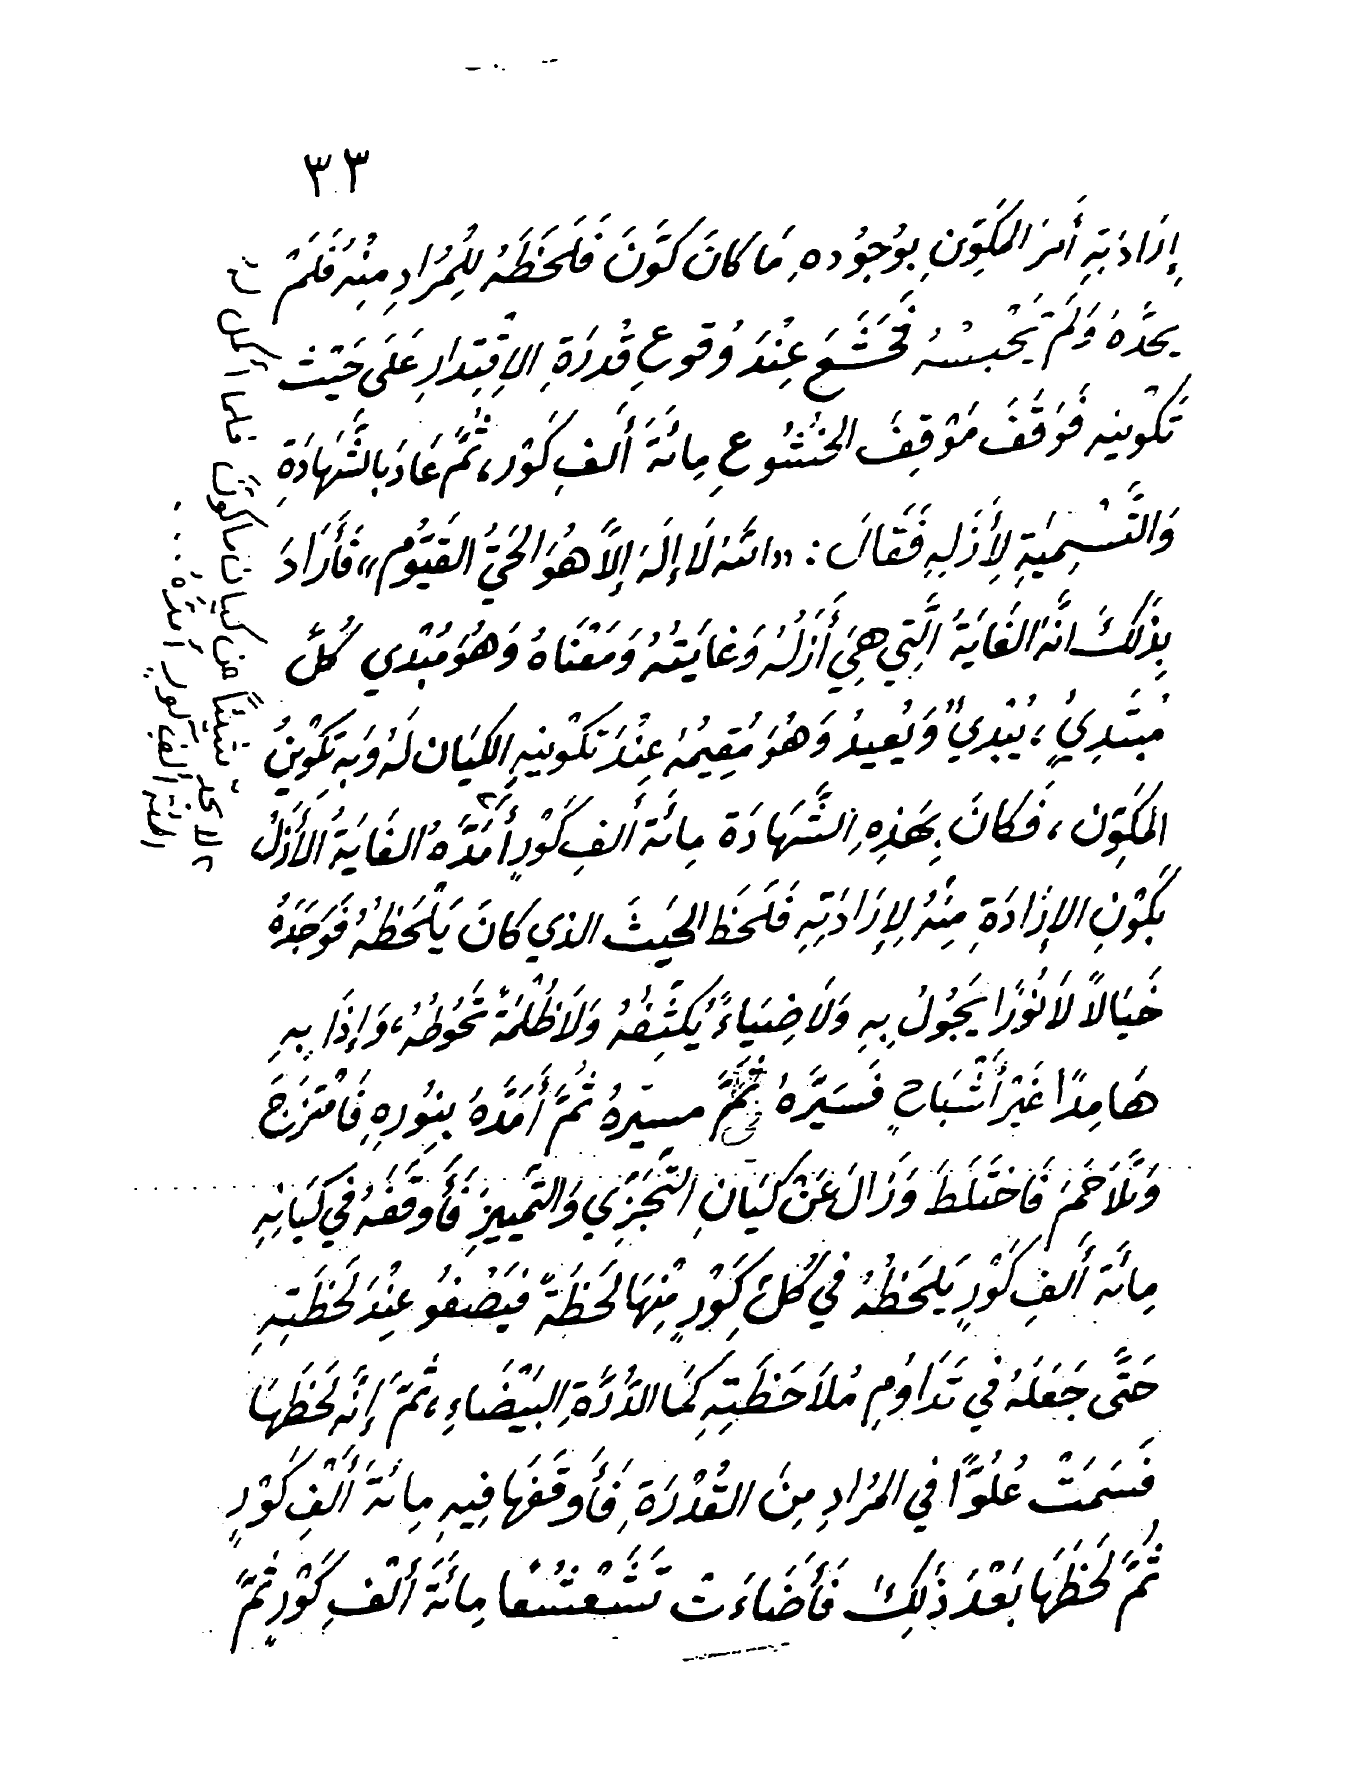 ٣٣
إِرَادَتِهِ أَمرَ المكَوِّنِ بِوُجُودِهِ مَا كَانَ كَوَّنَ فَلَحَظَهُ لِلمُرَادِ مِنْهُ فَلَمْ
يحدَّهُ وَلَمْ يَحْبِسْهُ فَخَشَعَ عِنْدَ وُقوعِ قُدرَةِ الاِقْتِدَارِ عَلَى حَيْثِ
تَكْوِينِهِ فَوَقَفَ مَوْقِفَ الخُشُوعِ مِائَةَ أَلفِ كَوْرٍ، ثُمَّ عَادَ بِالشَّهَادَةِ
وَالتَّسْمِيَةِ لِأَزَلِهِ فَقَالَ : «اللهُ لَا إِلَهَ إِلاَّ هُوَ الحَيُّ القَيُّومُ» فَأَرَادَ
بِذَلكَ انَّهُ الغَايَةُ الَّتِي هِيَ أَزَلُهُ وَغايَتُهُ وَمَعْنَاهُ وَهُوَ مُبْدِي كُلَّ
مُبتَدِيٍ ؛ يُبْدِيُ وَيُعِيدُ وَهُوَ مُقِيمُهُ عِنْدَ تَكْوِينِهِ الكيَان لَهُ وَبِهِ تكوِينُ
المكَوِّن ، فَكَانَ بِهَذِهِ الشَّهَادَة مِائَة أَلفِ كَوْرٍ أَمَدَّهُ الغَايَةُ الأَزَلُ
بِكَوْنِ الإِرَادَةِ مِنْهُ لِإِرَادَتِهِ فَلَحَظَ الحَيثَ الذي كَانَ يَلْحَظُهُ فَوَجَدَهُ
خَيَالاً لَا نُورًا يَجُولُ بِهِ وَلَا ضِيَاءً يُكَثِّفُهُ وَلَا ظُلْمَةً تَحُوطُهُ، وَإِذَا بِهِ
هَامِدًا غَيْرَ أَشْبَاحٍ فَسَيَّرَهُ ثُمَّ مسيّرهُ ثُمَّ أَمَدَّهُ بِنُورِهِ فَامْتَزَجَ
وَتَلَاحَمَ فَاختَلَطَ وَزَالَ عَنْ كيَانِ التَّجَزِّي وَالتَّمييزِ فَأَوقَفَهُ فِي كيَانِهِ
مِائَة أَلفِ كَوْرٍ يَلحَظُهُ فِي كُلِّ كَوْرٍ مِنْهَا لَحْظَةً فَيَصْفُو عِنْدَ لَحْظَتِهِ
حَتَّى جَعَلَهُ فِي تَدَاوُمِ مُلَاحَظَتِهِ كَمَا الدُّرَّةِ البَيْضَاءِ، ثُمَّ إِنَّه لَحَظَهَا
فَسَمَتْ عُلُوًّا فِي المُرَادِ مِنَ القُدْرَةِ فَأَوقَفَهَا فِيهِ مِائَةَ أَلْفِ كَوْرٍ
ثُمَّ لَحَظَهَا بَعْدَ ذَلِكَ فَأَضَاءَتْ تَشَعْشُعًا مِائَةَ أَلْفِ كَوْرٍ ثُمَّ
فلما أكمل